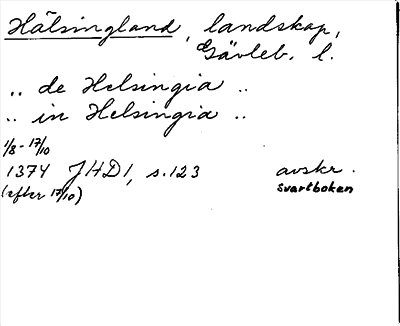 Hälsingland, landskap,
Gävleb. l.
.. de Helsingia ..
.. in Helsingia ..
1/8 - 17/10
1374 JHD 1, s. 123 avskr.
(efter 17/10) svartboken